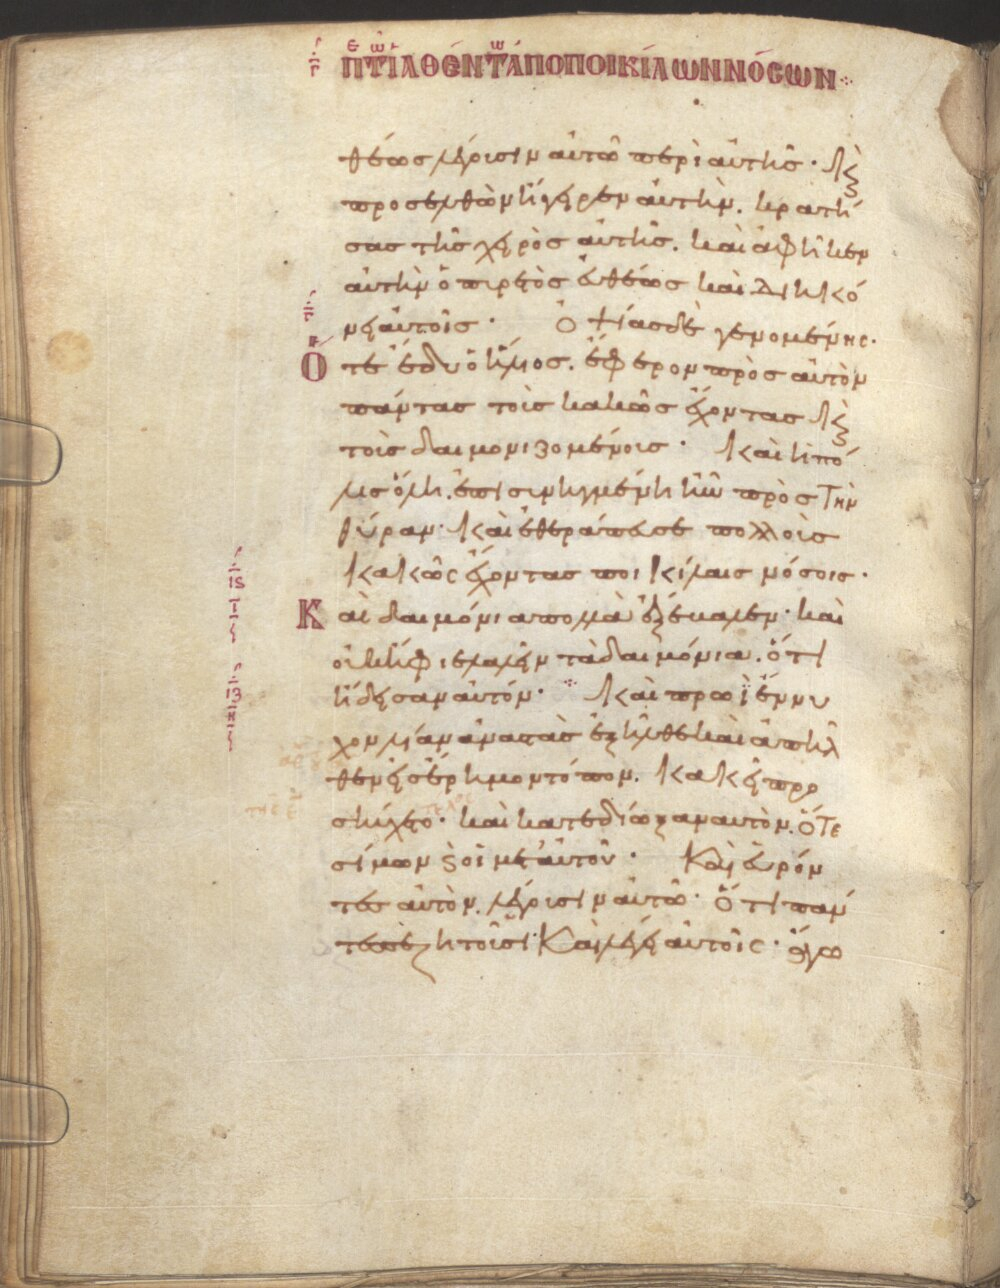 Γ ΠΤΙΑΘΕΝΤΑΠΟΠΟΙΚΙΛΩΝΝΟΣΩΝ
θέως λέγουσιν αὐτῶ περὶ αὐτῆς· καὶ
προσελθὼν ἤγειρεν αὐτὴν. κρατή
σας τῆς χειρὸς αὐτῆς. καὶ ἀφῆκεν
αὐτὴν ὁ πυρετὸς εὐθέως καὶ διηκό
νει αὐτοῖς· Ὀψίας δὲ γενομένης·
Ὅτε ἔδυ ὁ ἥλιος. ἔφερον πρὸς αὐτὸν
πάντας τοὺς κακῶς ἔχοντας καὶ
τοὺς δαιμονιζομένους· καὶ ἡ πό
λις ὅλη ἐπισυνηγμένη ἦν πρὸς τὴν
θύραν· καὶ ἐθεράπευσε πολλοὺς
κακῶς ἔχοντας ποικίλαις νόσοις·
Καὶ δαιμόνια πολλὰ ἐξέβαλεν· καὶ
οὐκ ἤφιε λαλεῖν τὰ δαιμόνια. ὅτι
ἤδεισαν αὐτόν· καὶ πρωῒ ἔννυ
χον λίαν ἀναστὰς ἐξῆλθε καὶ ἀπῆλ
θεν εἰς ἔρημον τόπον. κακεῖ προ
σηύχετο· καὶ κατεδίωξαν αὐτὸν. ὅτε
σίμων καὶ οἱ μετ αὐτοῦ· Καὶ εὑρόν
τες αὐτὸν. λέγουσιν αὐτῶ· Ὅτι πάν
τες σε ζητοῦσι· Καὶ λέγει αὐτοῖς· ἄγω